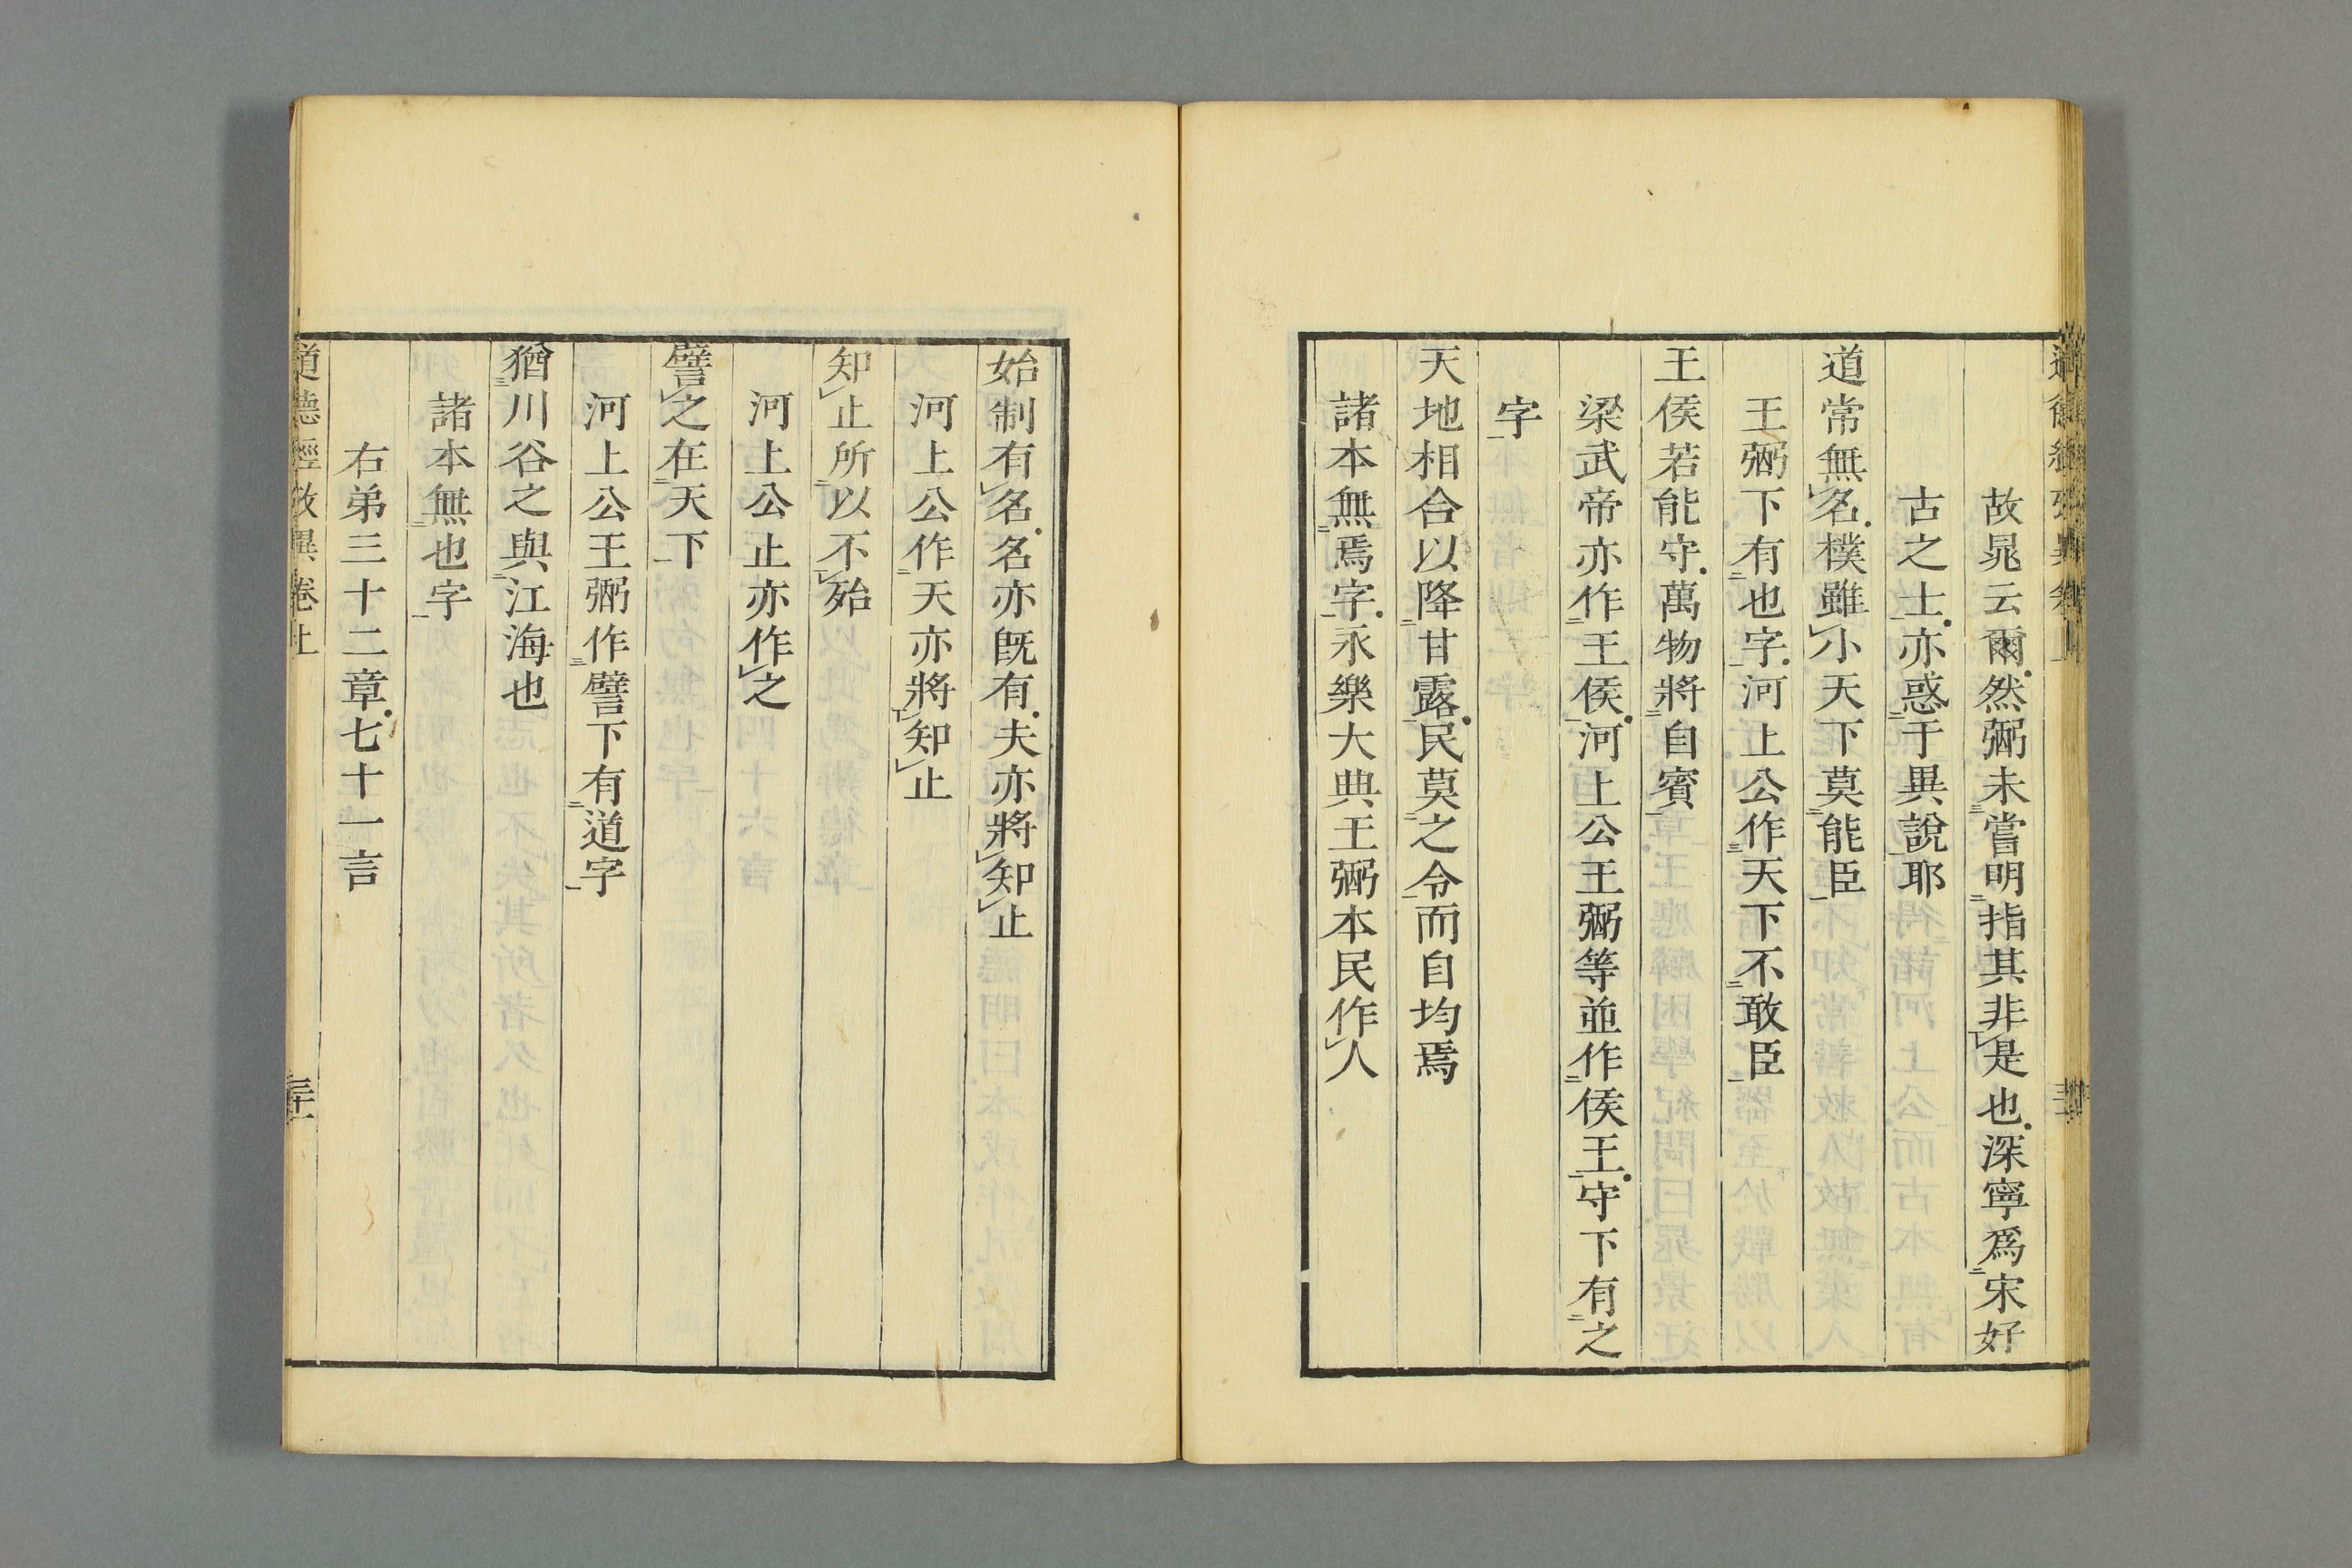 故晁云爾然弼未嘗明指其非是也深寧爲宋好
古之士亦惑于異說耶
道常無名樸雖小天下莫能臣
王弼下有也字河上公作天下不敢臣
王侯若能守萬物將自賓
梁武帝亦作王侯河上公王弼等並作侯王守下有之
字
天地相合以降甘露民莫之令而自均焉
諸本無焉字永樂大典王弼本民作人
始制有名名亦既有夫亦將知止
河上公作天亦將知止
知止所以不殆
河上公止亦作之
譬之在天下
河上公王弼作譬下有道字
猶川谷之與江海也
諸本無也字
右弟三十二章七十一言
道德經攷異卷上